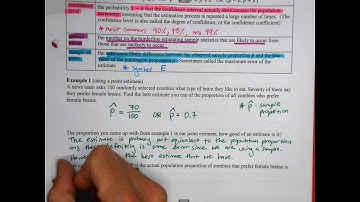 confidence level
the probability 1 − α that the confidence interval actually does contain the population parameter, assuming that the estimation process is repeated a large number of times. (The confidence level is also called the degree of confidence, or the confidence coefficient)
* most common: 90%, 95%, and 99%
the number on the borderline separating sample statistics that are likely to occur from those that are unlikely to occur.
the maximum likely difference between the observed sample proportion p̂ and the true value of the population proportion p. Sometimes called the maximum error of the estimate
* Symbol E
Example 1 (using a point estimate)
A news team asks 100 randomly selected zombies what type of brain they like to eat. Seventy of them say
they prefer female brains. Find the best estimate you can of the proportion of all zombies who prefer
female brains.
p̂ = 70/100 OR p̂ = 0.7
* p̂: sample
proportion
The proportion you came up with from example 1 is our point estimate, how good of an estimate is it?
The estimate is probably not equivalent to the population proportion
and there definitely is some error since we are using a sample.
However the best estimate that we have.
the actual population proportion of zombies that prefer female brains is